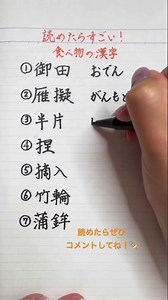 読めたらすごい!
食べ物の漢字
①御田 おでん
②雁擬 がんもど
③半片
④捏
⑤摘入
⑥竹輪
⑦蒲鉾
読めたらぜひ
コメントしてね!